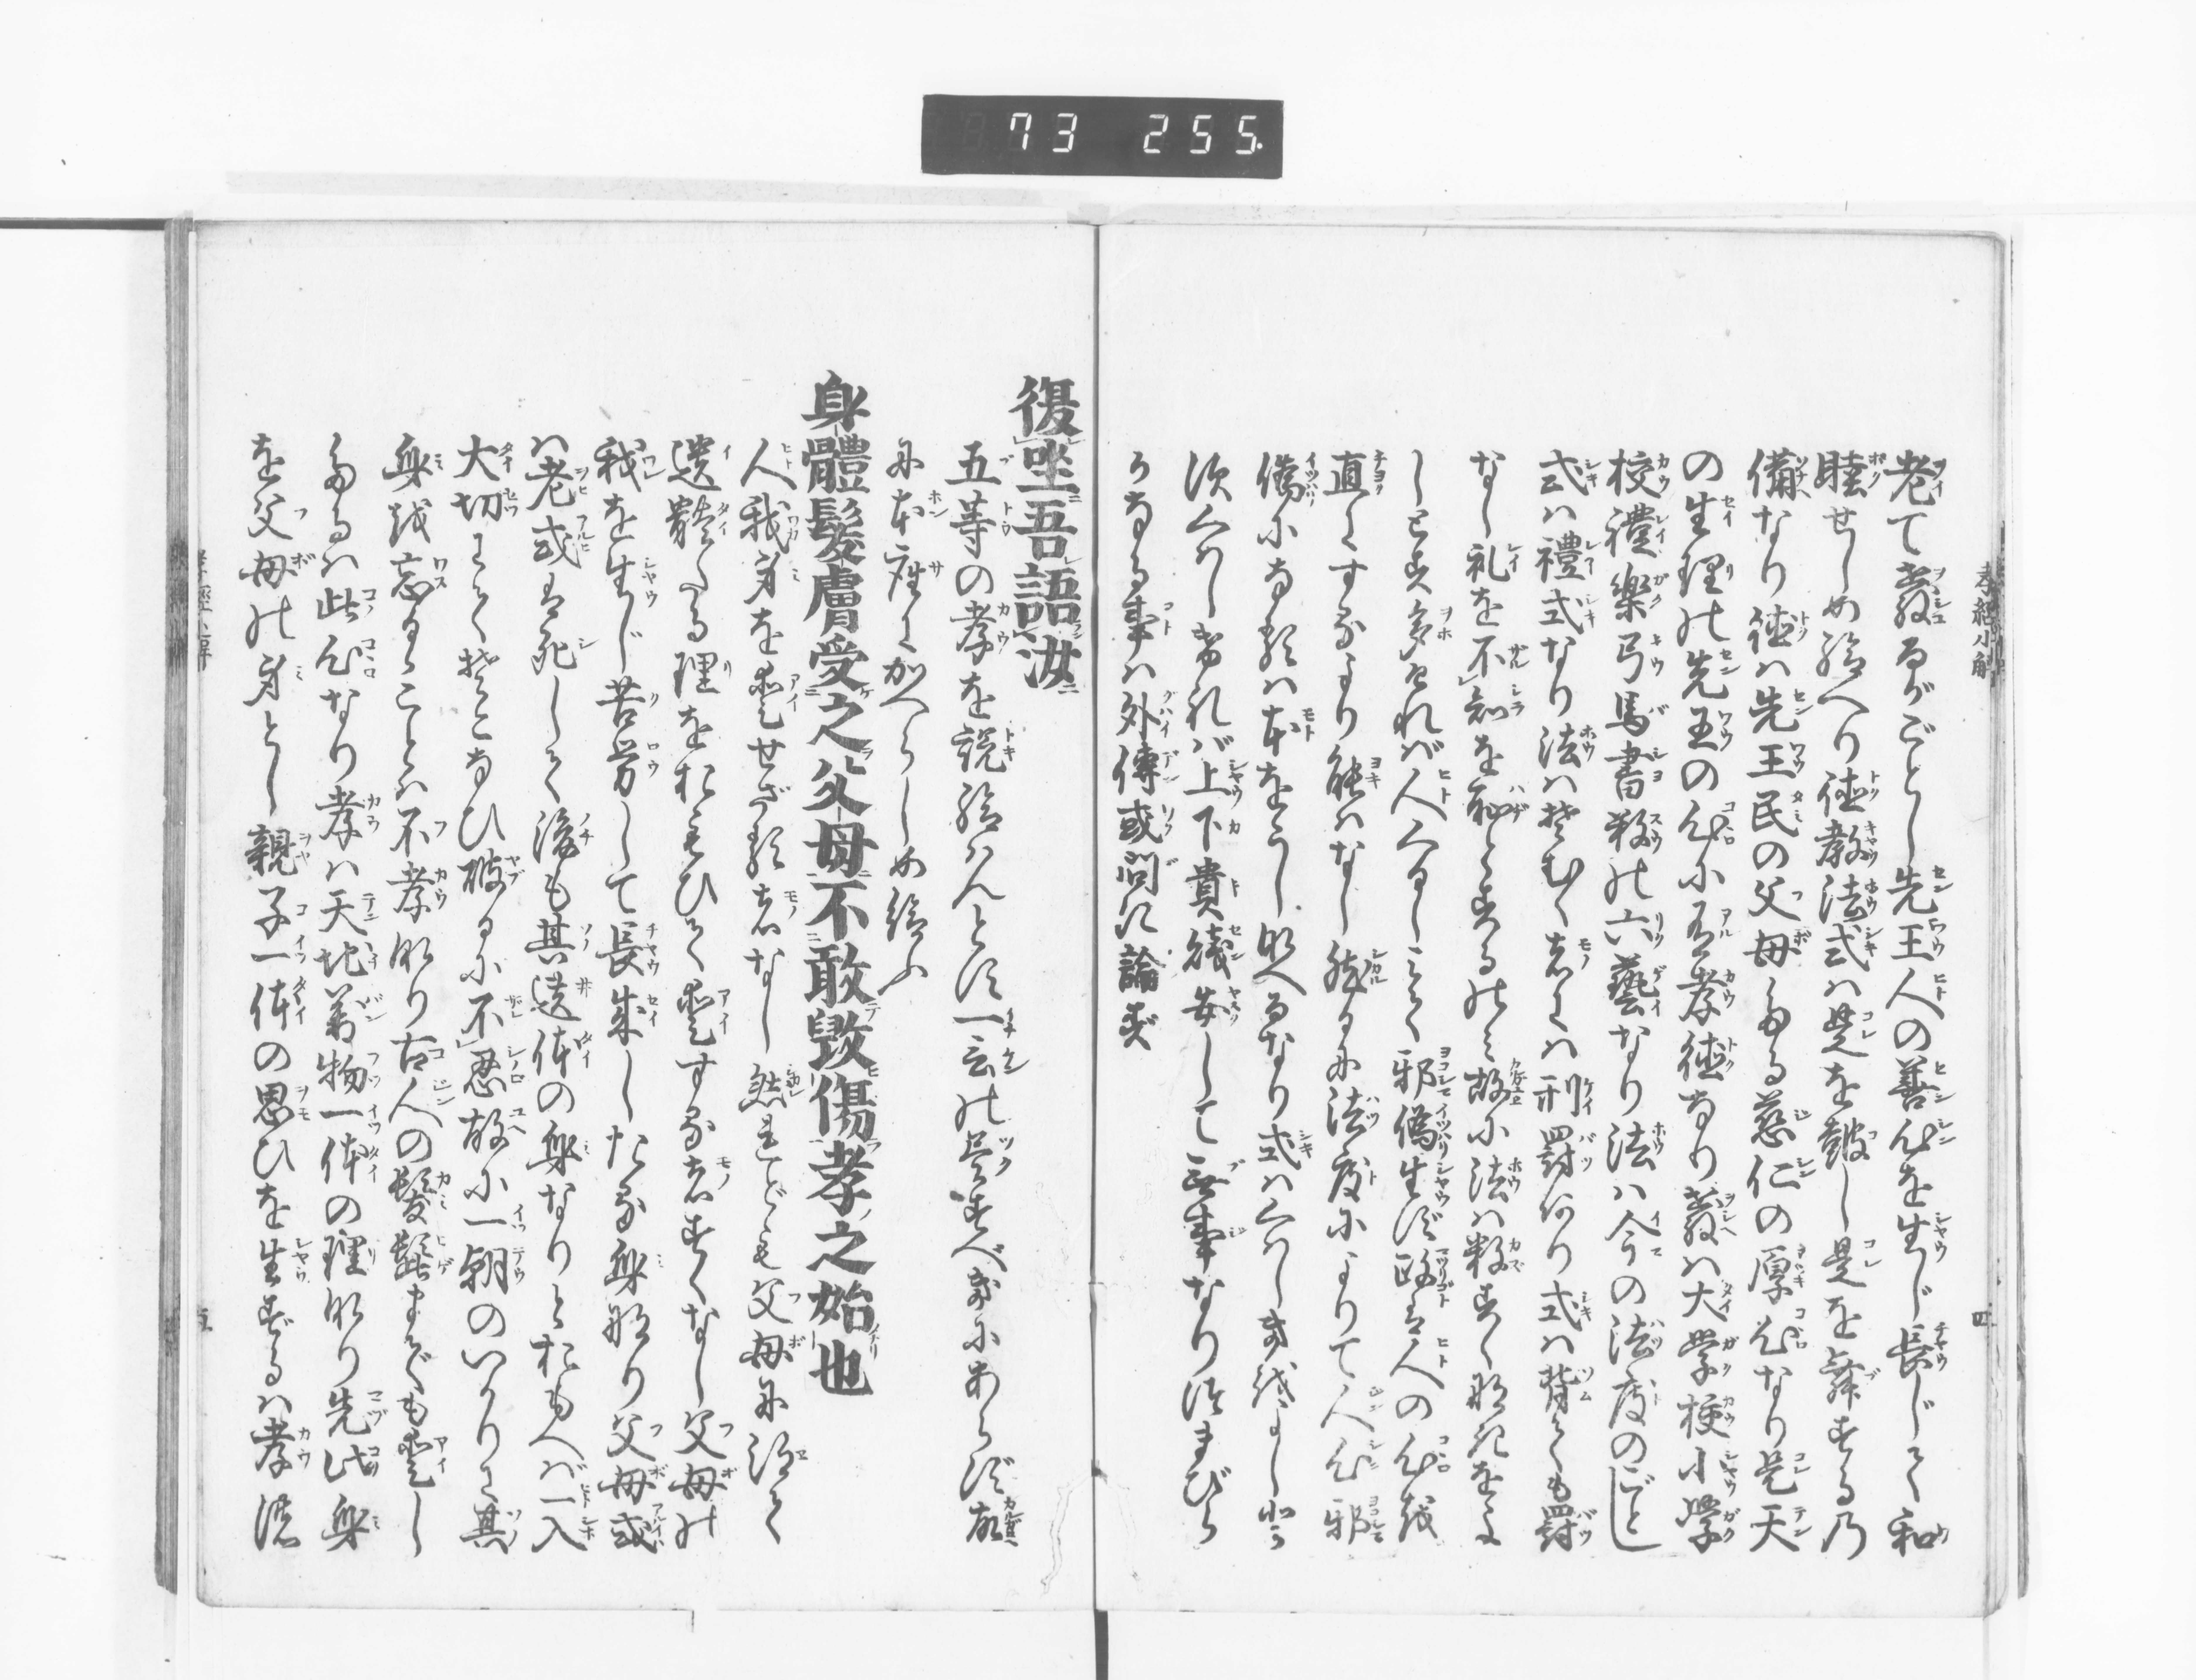 73 255.
孝經小解
四
老て教るがごとし先王人の善心を生じ長じて和
睦せしめ給へり徳教法式は是を鼓し是を舞する乃
備なり徳は先王民の父母たる慈仁の厚心なり是天
の生理の先王の心に有孝徳なり教は大学校小学
校禮樂弓馬書数の六藝なり法は今の法度のごとし
式は禮式なり法はそむく者には刑罰有り式は背ても罰
なし礼を不知を恥とするのみ故に法は数すくなきをよ
しとす多ければ人くるしみて邪偽生ず政は人の心を
直くするより能はなし然るに法度によりて人心邪
偽になるは本をうしなへるなり式は
上下貴賤安して無事なり
なる事は外傳或問に論ず
復坐吾語汝
五等の孝を説給はんとす一言の尽すべきにあらず故
に本座にかへらしめ給ふ
身體髮膚受之父母不敢毀傷孝之始也
人我身を愛せざる者なし然れども父母に得て
遺體たる理をおもひて愛する者すくなし父母の
我を生じ苦労して長成したる身なり父母或
は老或は死して後も其遺体の身なりとおもへば一入
大切にてそこなひ破るに不忍故に一朝のいかりに其
身を忘るることは不孝なり古人の髪髭までも愛し
たるは此心なり孝は天地萬物一体の理なり先此身
を父母の身とし親子一体の思ひを生ずるは孝徳
孝經小解
五